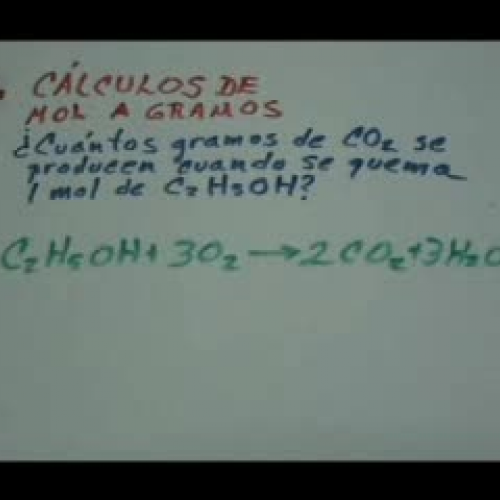 CÁLCULOS DE
MOL A GRAMOS
¿Cuántos gramos de CO₂ se
producen cuando se quema
1 mol de C₂H5OH?
C₂H₅OH + 3O₂ → 2CO₂ + 3H₂O